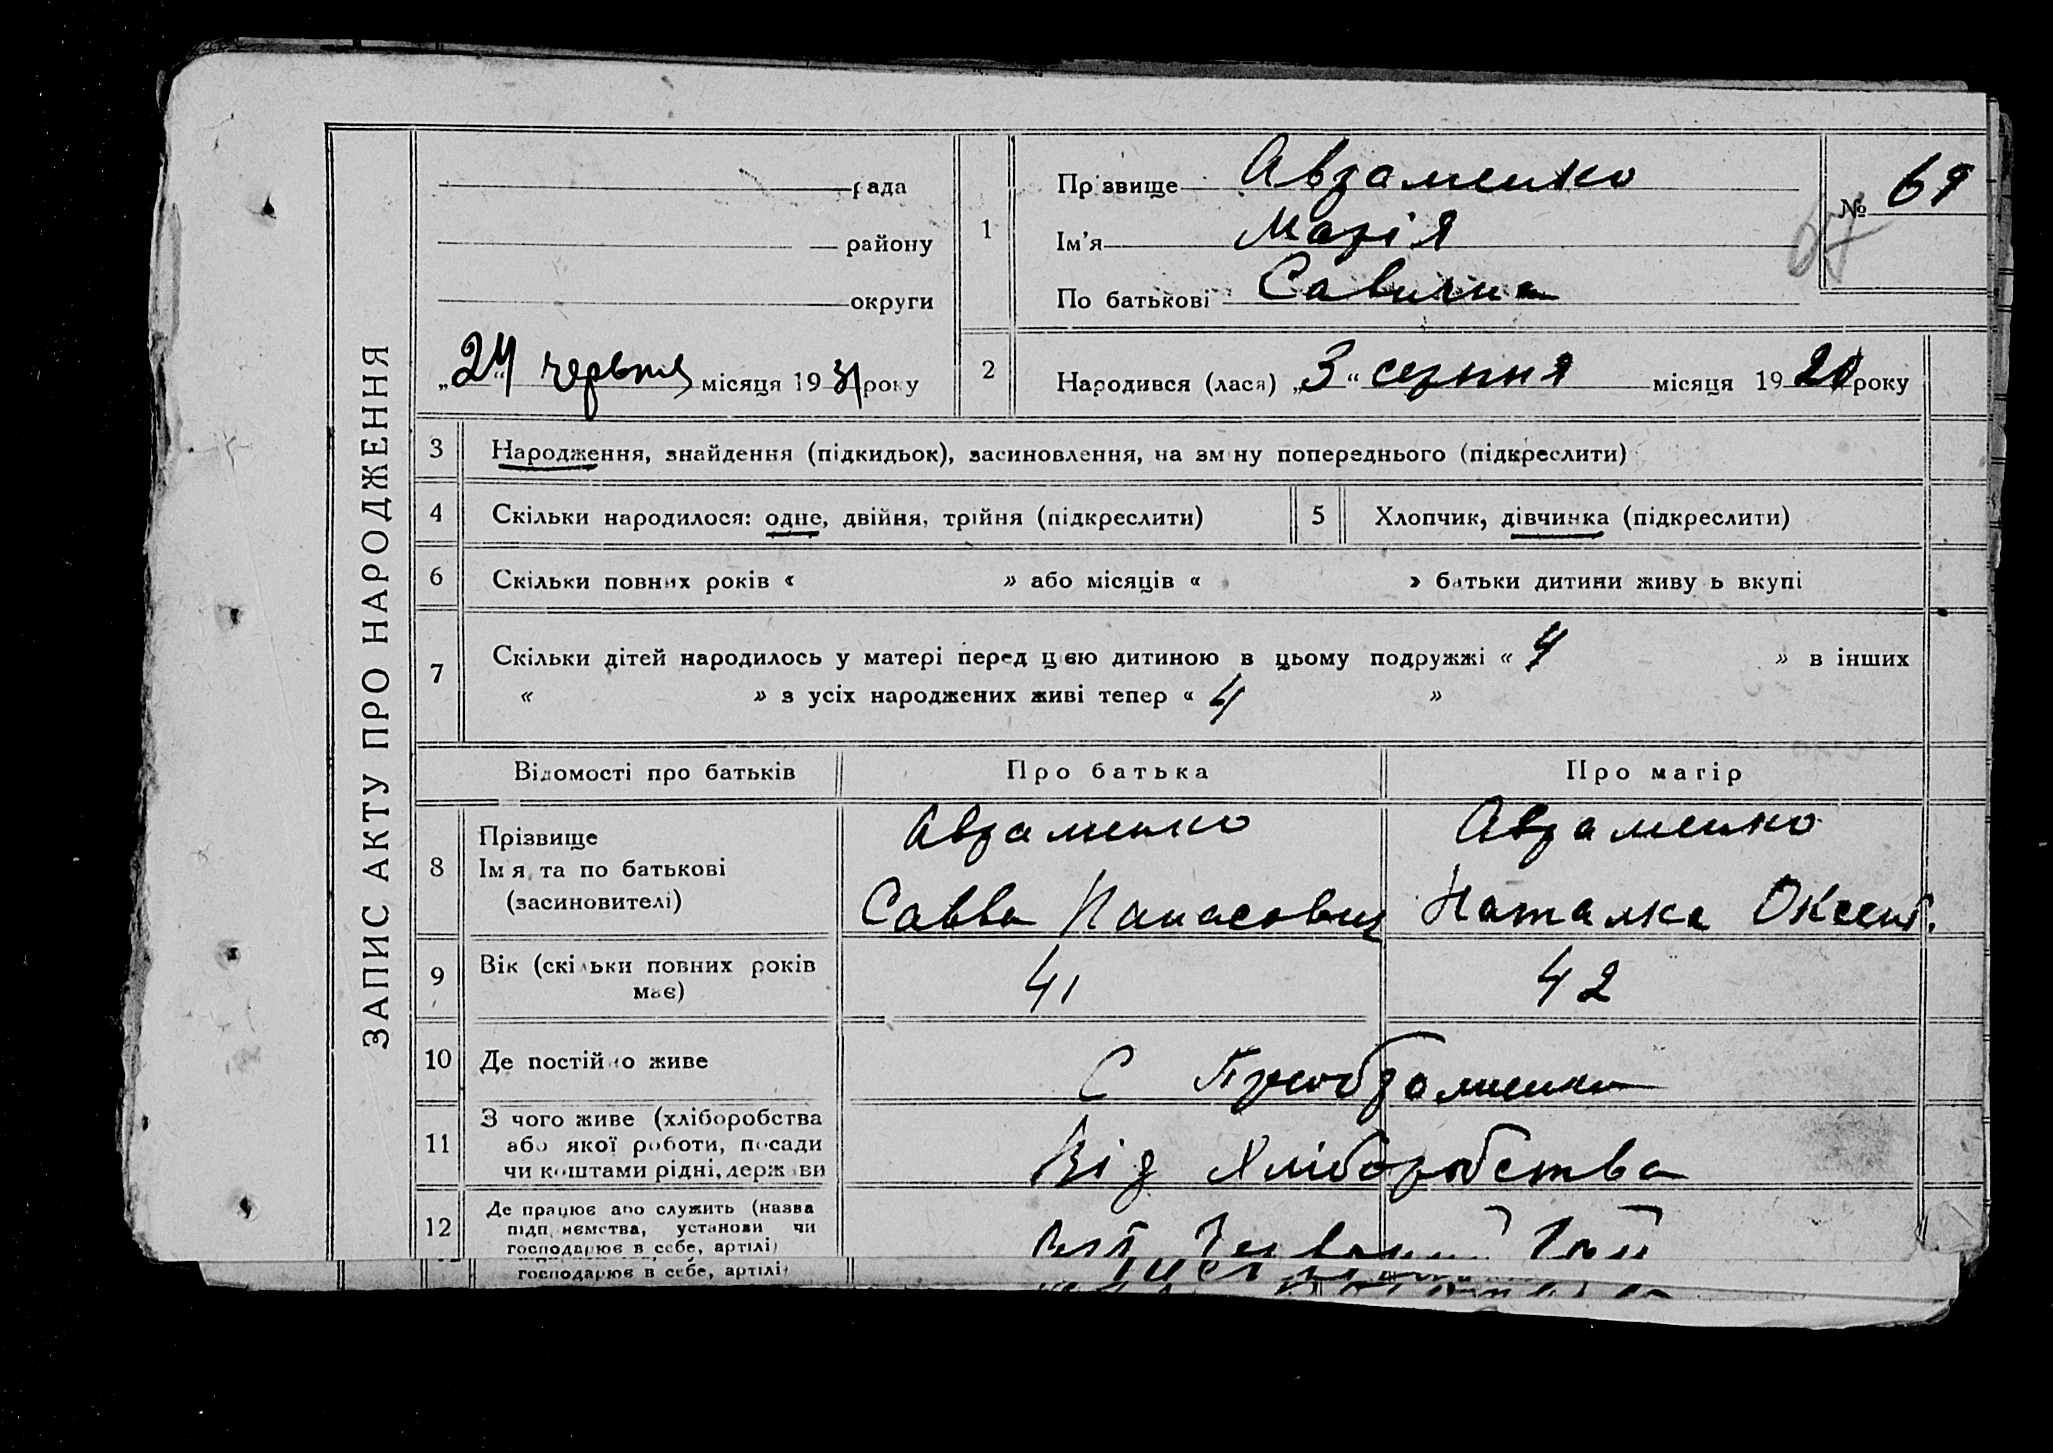 ЗАПИС АКТУ ПРО НАРОДЖЕННЯ
рада
району
округи
„24“ червня місяця 1931 року
1
Прізвище Авраменко
Ім'я Марія
По батькові Савична
№ 69
2
Народився (лася) „3“ серпня місяця 1920 року
3 Народження, знайдення (підкидьок), засиновлення, на зміну попереднього (підкреслити)
4 Скільки народилося: одне, двійня, трійня (підкреслити)
5 Хлопчик, дівчинка (підкреслити)
6 Скільки повних років « » або місяців « » батьки дитини живуть вкупі
7 Скільки дітей народилось у матері перед цією дитиною в цьому подружжі « 4 » в інших
« » з усіх народжених живі тепер « 4 »
Відомості про батьків Про батька Про матір
8 Прізвище
Ім'я та по батькові
(засиновителі)
Авраменко
Савва Панасович
Авраменко
Наталка Оксент.
9 Вік (скільки повних років
має)
41 42
10 Де постійно живе
С
11 З чого живе (хліборобства
або якої роботи, посади
чи коштами рідні, держави
Від Хліборобства
12 Де працює або служить (назва
підприємства, установи чи
господарює в себе, артілі)
господарює в себе, артілі)